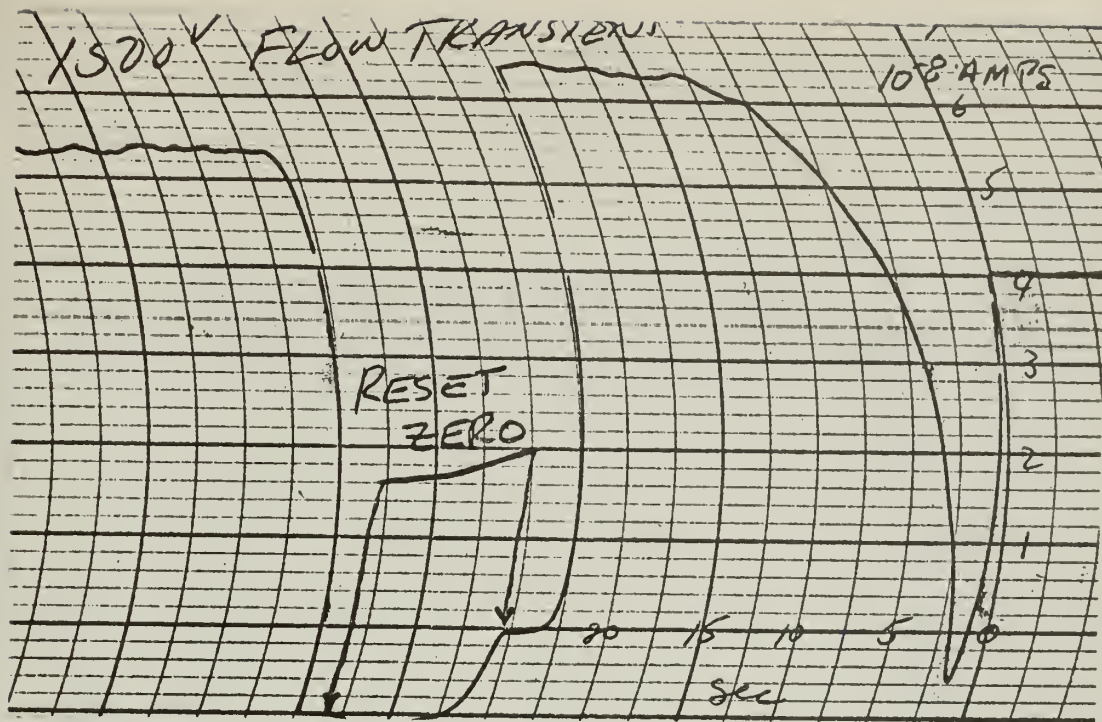 1500 V FLOW TRANSIENT
10⁻⁸ AMPS
6
5
4
3
RESET
ZERO
2
1
20 15 10 5 0
Sec